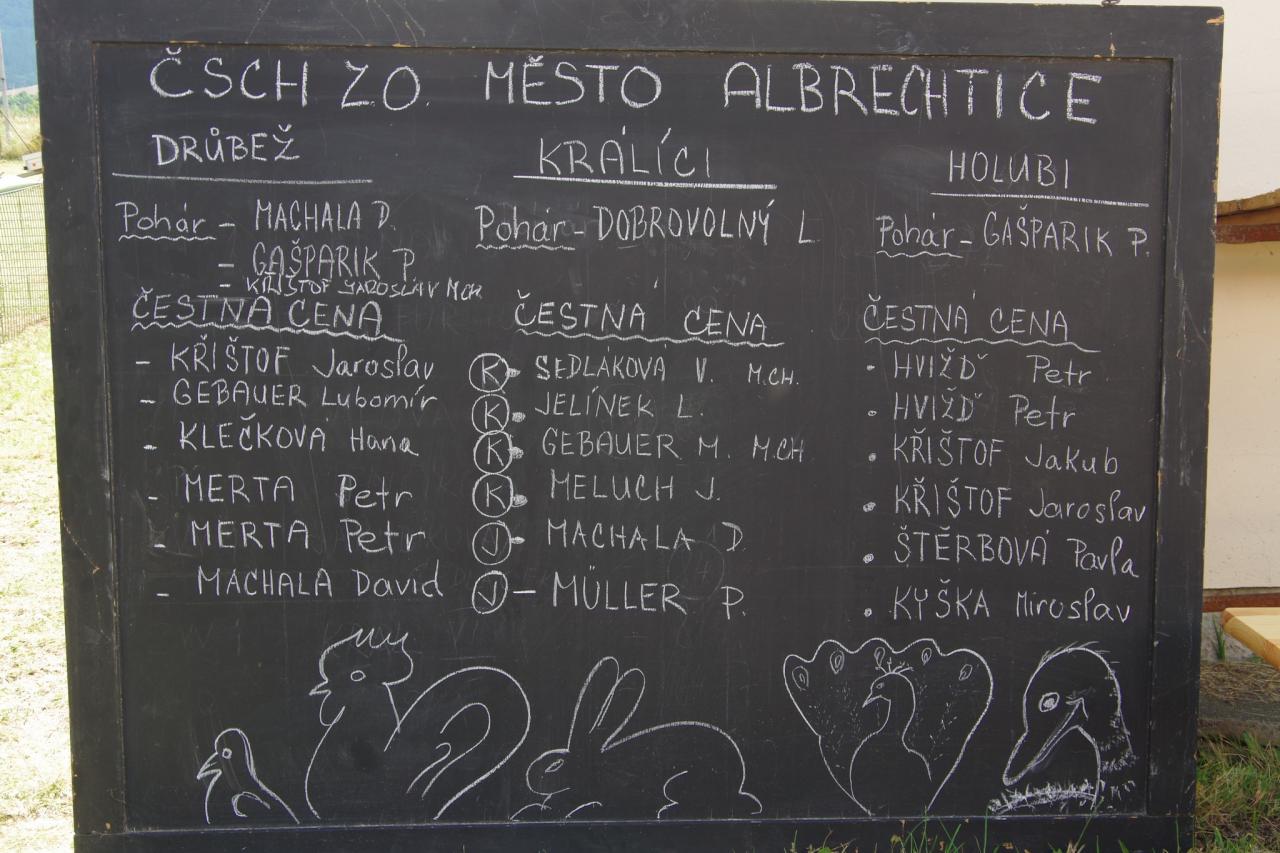 ČSCH Z.O. MĚSTO ALBRECHTICE
DRŮBEŽ
Pohár - MACHALA D.
- GAŠPARIK P.
- KŘIŠTOF JAROSLAV M.CH.
ČESTNÁ CENA
- KŘIŠTOF Jaroslav
- GEBAUER Lubomír
- KLEČKOVÁ Hana
- MERTA Petr
- MERTA Petr
- MACHALA David
KRÁLÍCI
Pohár - DOBROVOLNÝ L
ČESTNÁ CENA
K - SEDLÁKOVÁ V. M.CH.
K - JELÍNEK L.
K - GEBAUER M. M.CH.
K - MELUCH J.
J - MACHALA D.
J - MÜLLER P.
HOLUBI
Pohár - GAŠPARIK P.
ČESTNÁ CENA
- HVIŽĎ Petr
- HVIŽĎ Petr
- KŘIŠTOF Jakub
- KŘIŠTOF Jaroslav
- ŠTĚRBOVÁ Pavla
- KYŠKA Miroslav